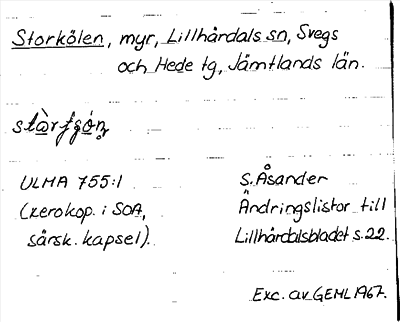 Storkölen, myr, Lillhärdals sn, Svegs
och Hede tg, Jämtlands län.
ULMA 755:1
(xerokop. i SOA,
särsk. kapsel).
S. Åsander
Ändringslistor till
Lillhärdalsbladet s. 22.
Exc. av GEHL 1967.